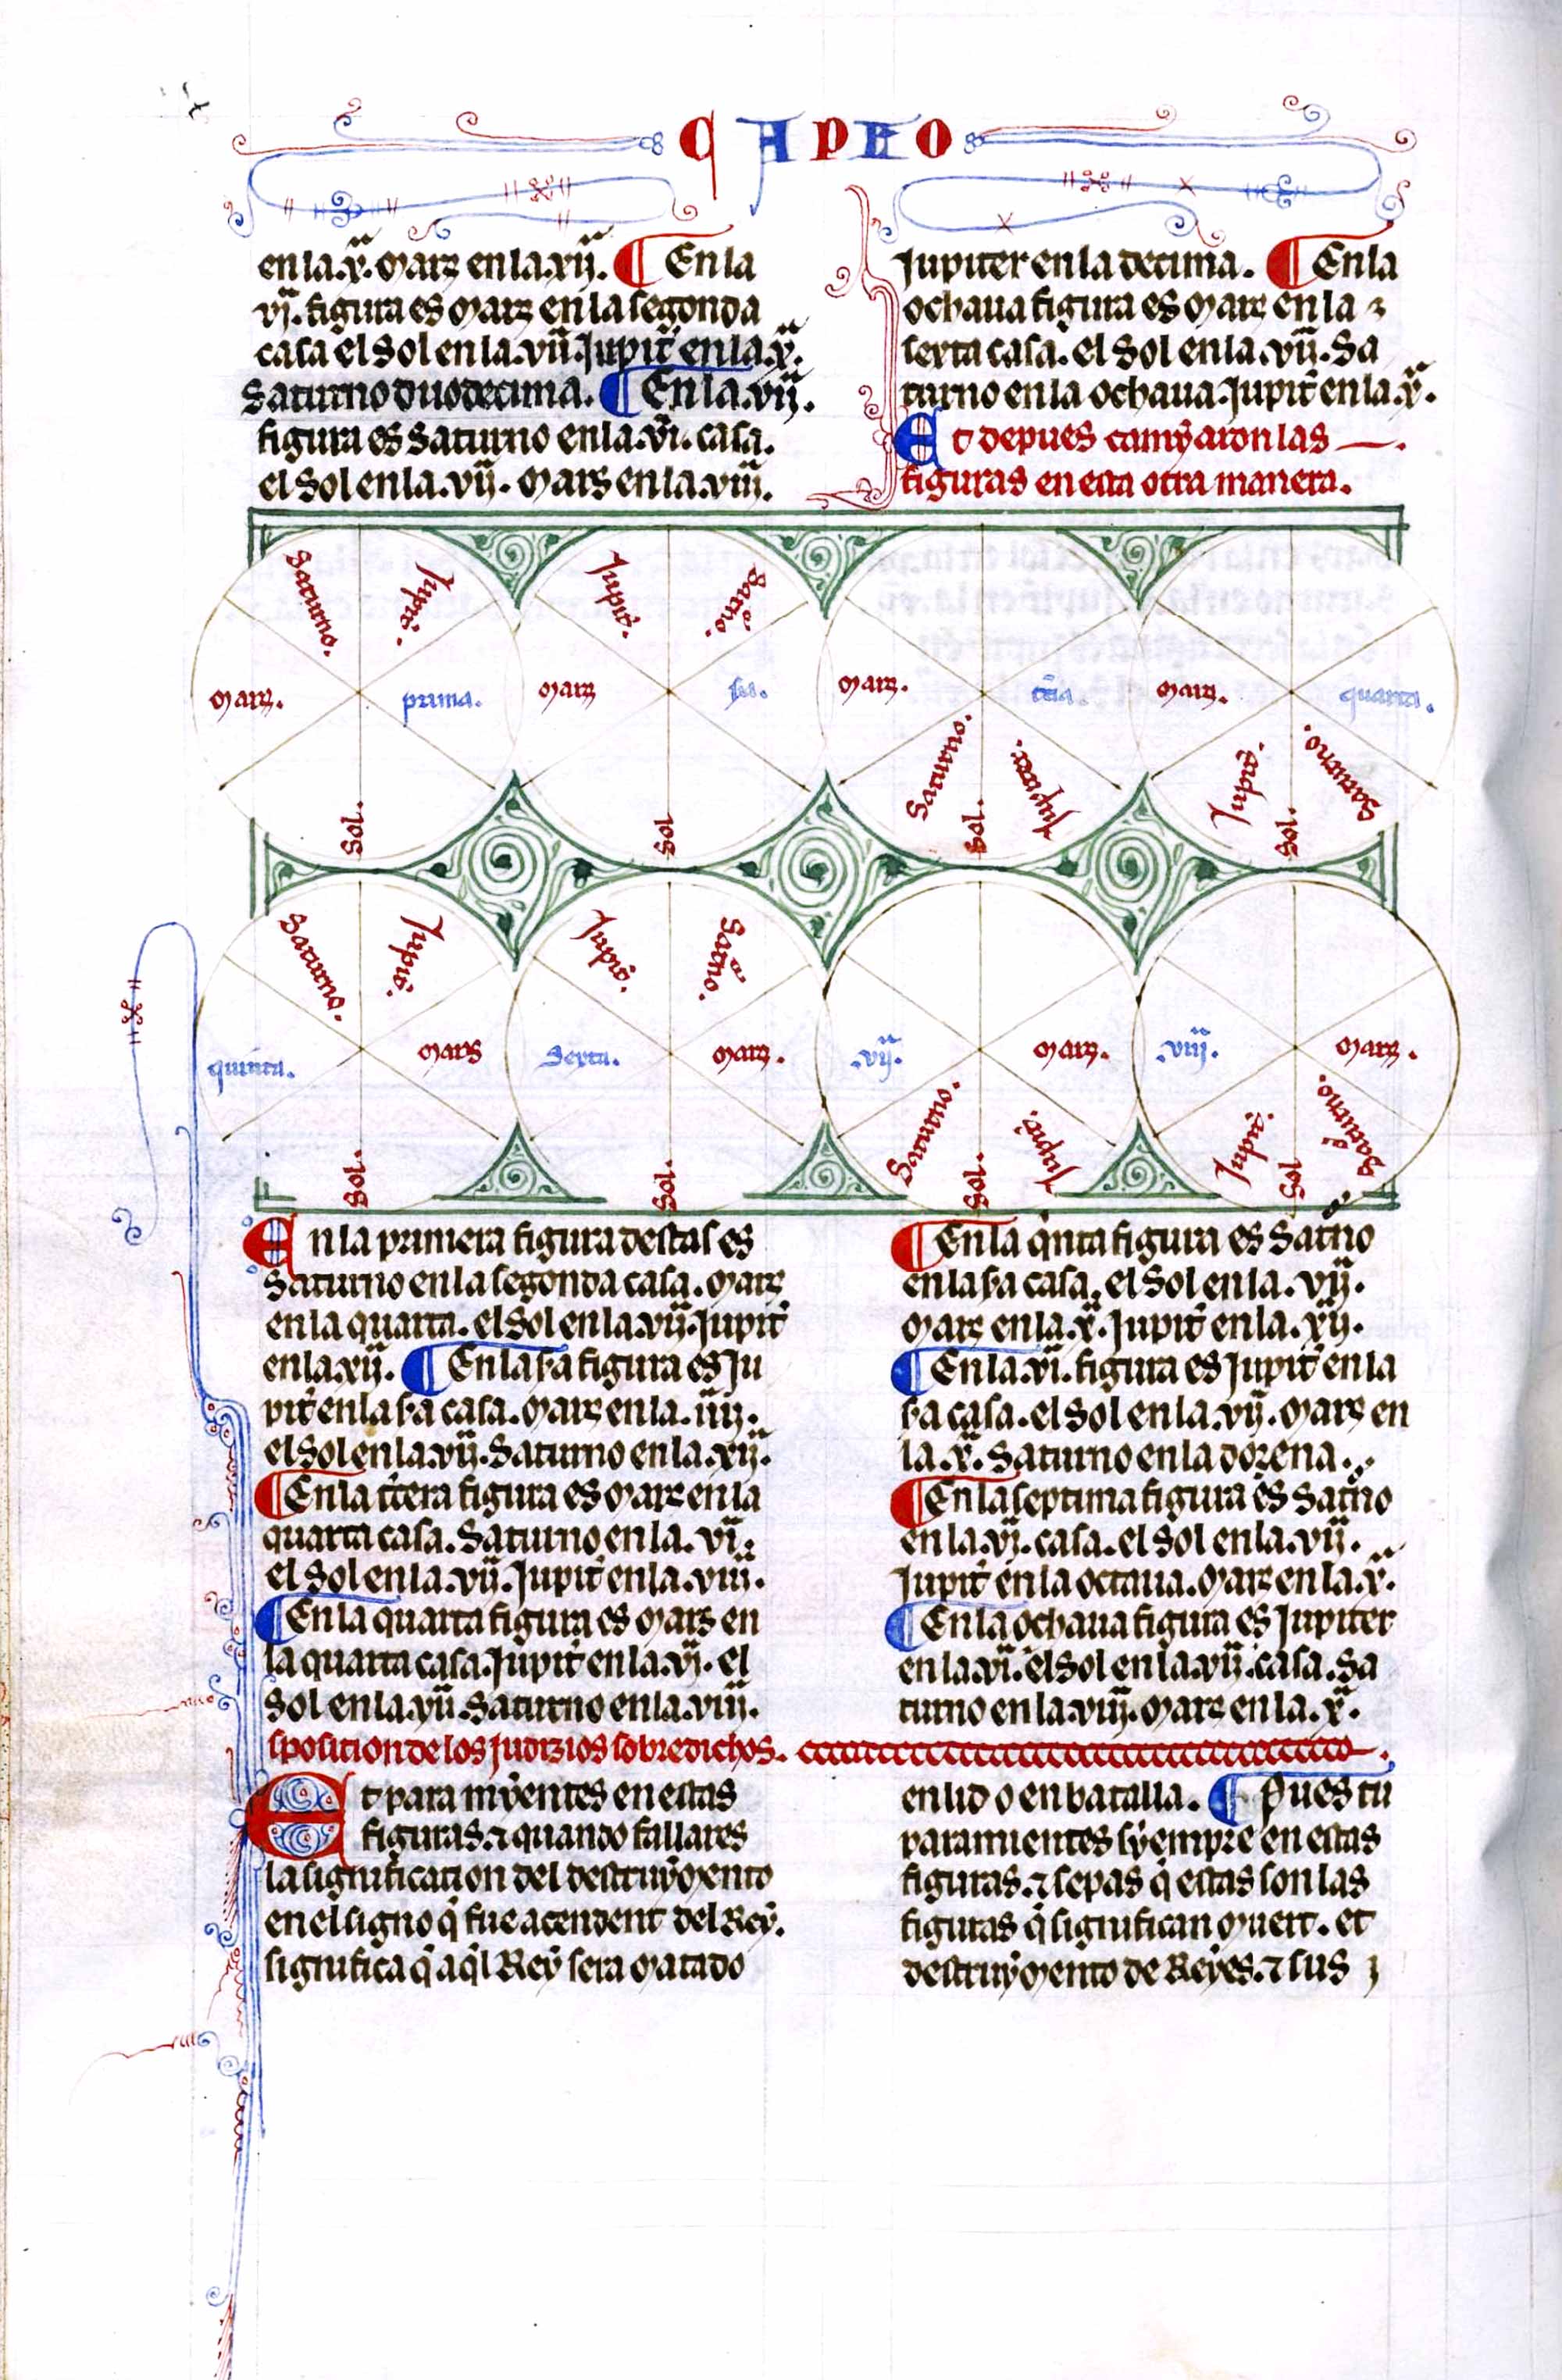 CAPITO
en la .xª. Marz en la .xijª. ¶ En la
viª. figura es Marz en la segonda
casa el Sol en la .vijª. Jupit̉ en la .xª.
Saturno duodecima. ¶ En la .vijª.
figura es Saturno en la .vi. casa.
el Sol en la .vijª. Mars en la .viijª.
Jupiter en la decima. ¶ En la
ochaua figura es Marz en la
sexta casa. el Sol en la .vijª. Sa
turno en la ochaua. Jupit̉ en la .xª.
Et depues camyaron las
figuras en esta otra manera.
Saturno.
Jupit̉.
Marz.
prima.
Sol.
Jupit̉.
Sat̉no.
Marz
sa.
Sol
Marz.
tc̉ia.
Saturno.
Jupiter.
Sol.
Marz.
quarta.
Jupit̉.
Saturno.
Sol.
Saturno.
Jupit̉.
quinta.
Mars
Sol.
Jupit̉.
Sat̉no.
Sexta.
Marz.
Sol.
.vijª.
Marz.
Saturno.
Jupit̉.
Sol.
.viijª.
Marz.
Jupit̉.
Saturno.
Sol
En la primera figura destas es
Saturno en la segonda casa. Marz
en la quarta. el Sol en la .vijª. Jupit̉
en la .xijª. ¶ En la sa figura es Ju
pit̉ en la sa casa. Marz en la .iiijª.
el Sol en la .vijª. Saturno en la .xijª.
¶ En la tc̉era figura es Marz en la
quarta casa. Saturno en la .viª.
el Sol en la .vijª. Jupit̉ en la .viijª.
¶ En la quarta figura es Mars en
la quarta casa. Jupit̉ en la .vjª. el
Sol en la .vijª. Saturno en la .viijª.
¶ En la qịnta figura es Sat̉no
en la sa casa. el Sol en la .vijª.
Marz en la .xª. Jupit̉ en la .xijª.
¶ En la .viª. figura es Jupit̉ en la
sa casa. el Sol en la .vijª. Marz en
la .xª. Saturno en la dozena.
¶ En la septima figura es Sat̉no
en la .vjª. casa. el Sol en la .vijª.
Jupit̉ en la octaua. Marz en la .xª.
¶ En la ochaua figura es Jupiter
en la .viª. el Sol en la .vijª. casa. Sa
turno en la .viijª. Marz en la .xª.
sposition de los judizios sobredichos.
Et para myentes en estas
figuras. ⁊ quando fallares
la signification del destruymento
en el signo q̉ fue acendent del Rey.
significa q̉ aq̉l Rey sera matado
en lid o en batalla. ¶ Pues tu
para mientes syempre en estas
figuras. ⁊ sepas q̉ estas son las
figuras q̉ significan muert. et
destruymento de Reyes. ⁊ sus